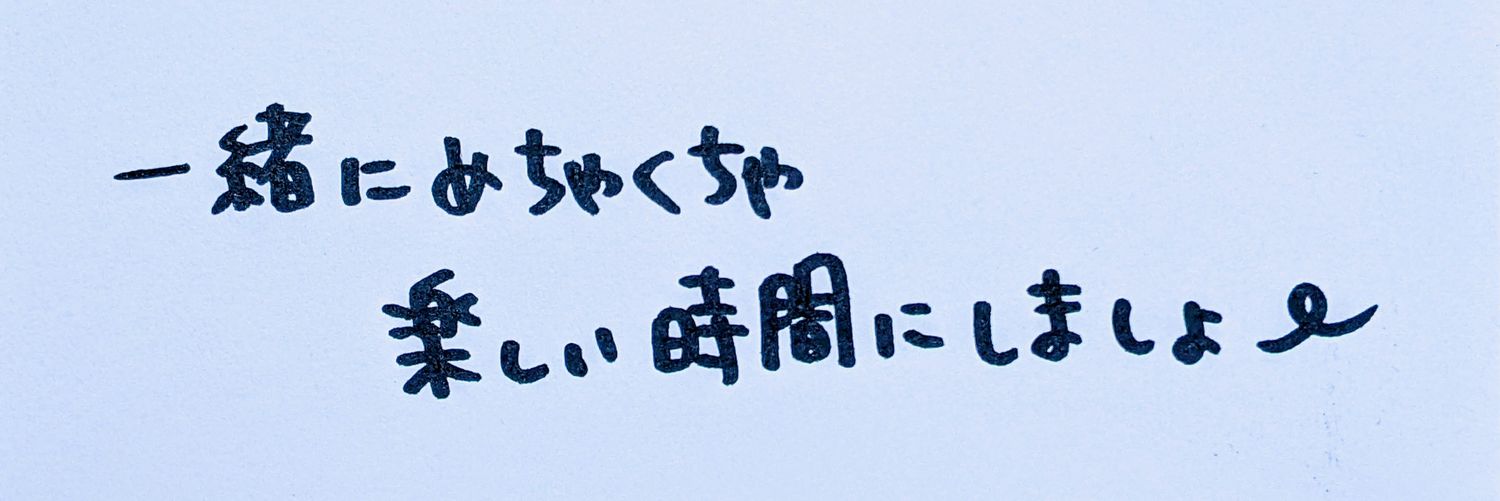 一緒にめちゃくちゃ
楽しい時間にしましょ